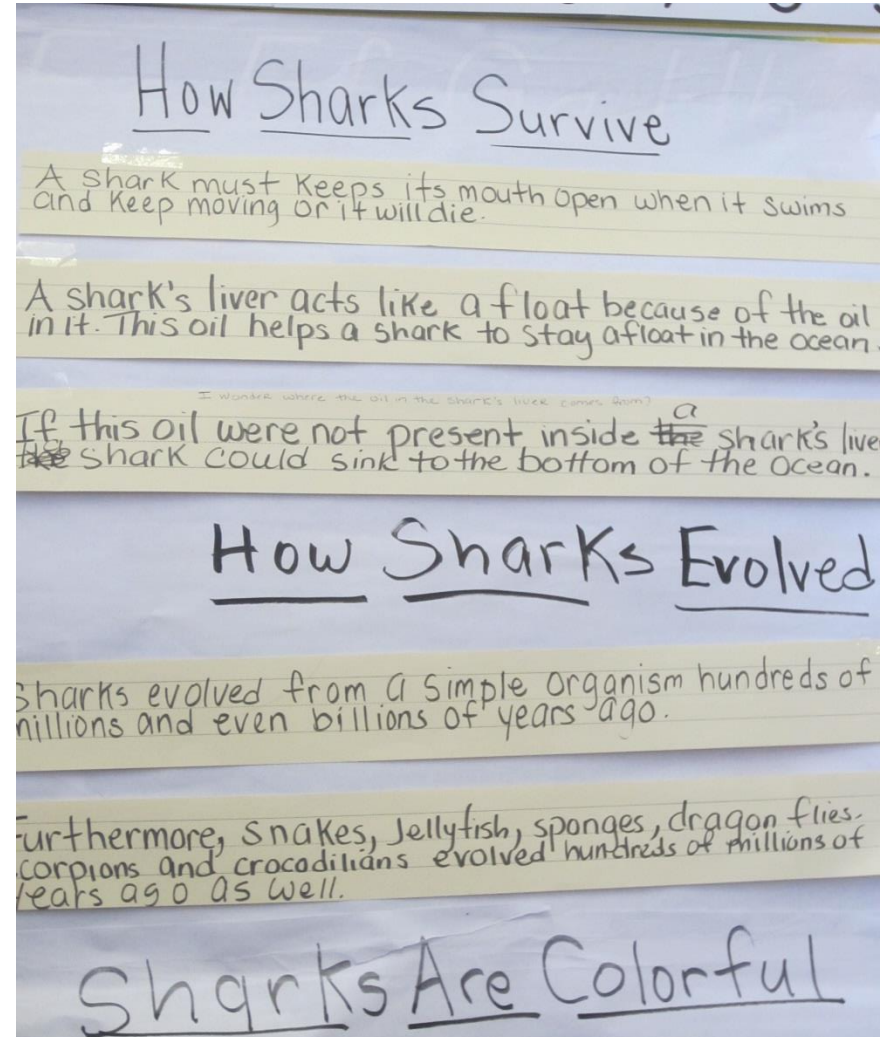 How Sharks Survive
A shark must keeps its mouth open when it swims
and keep moving or it will die.
A shark's liver acts like a float because of the oil
in it. This oil helps a shark to stay afloat in the ocean.
I wonder where the oil in the shark's liver comes from?
a
If this oil were not present inside the shark's live
shark could sink to the bottom of the ocean.
How Sharks Evolved
Sharks evolved from a simple organism hundreds of
millions and even billions of years ago.
Furthermore, snakes, Jellyfish, sponges, dragon flies,
corpions and crocodilians evolved hundreds of millions of
years ago as well.
Sharks Are Colorful